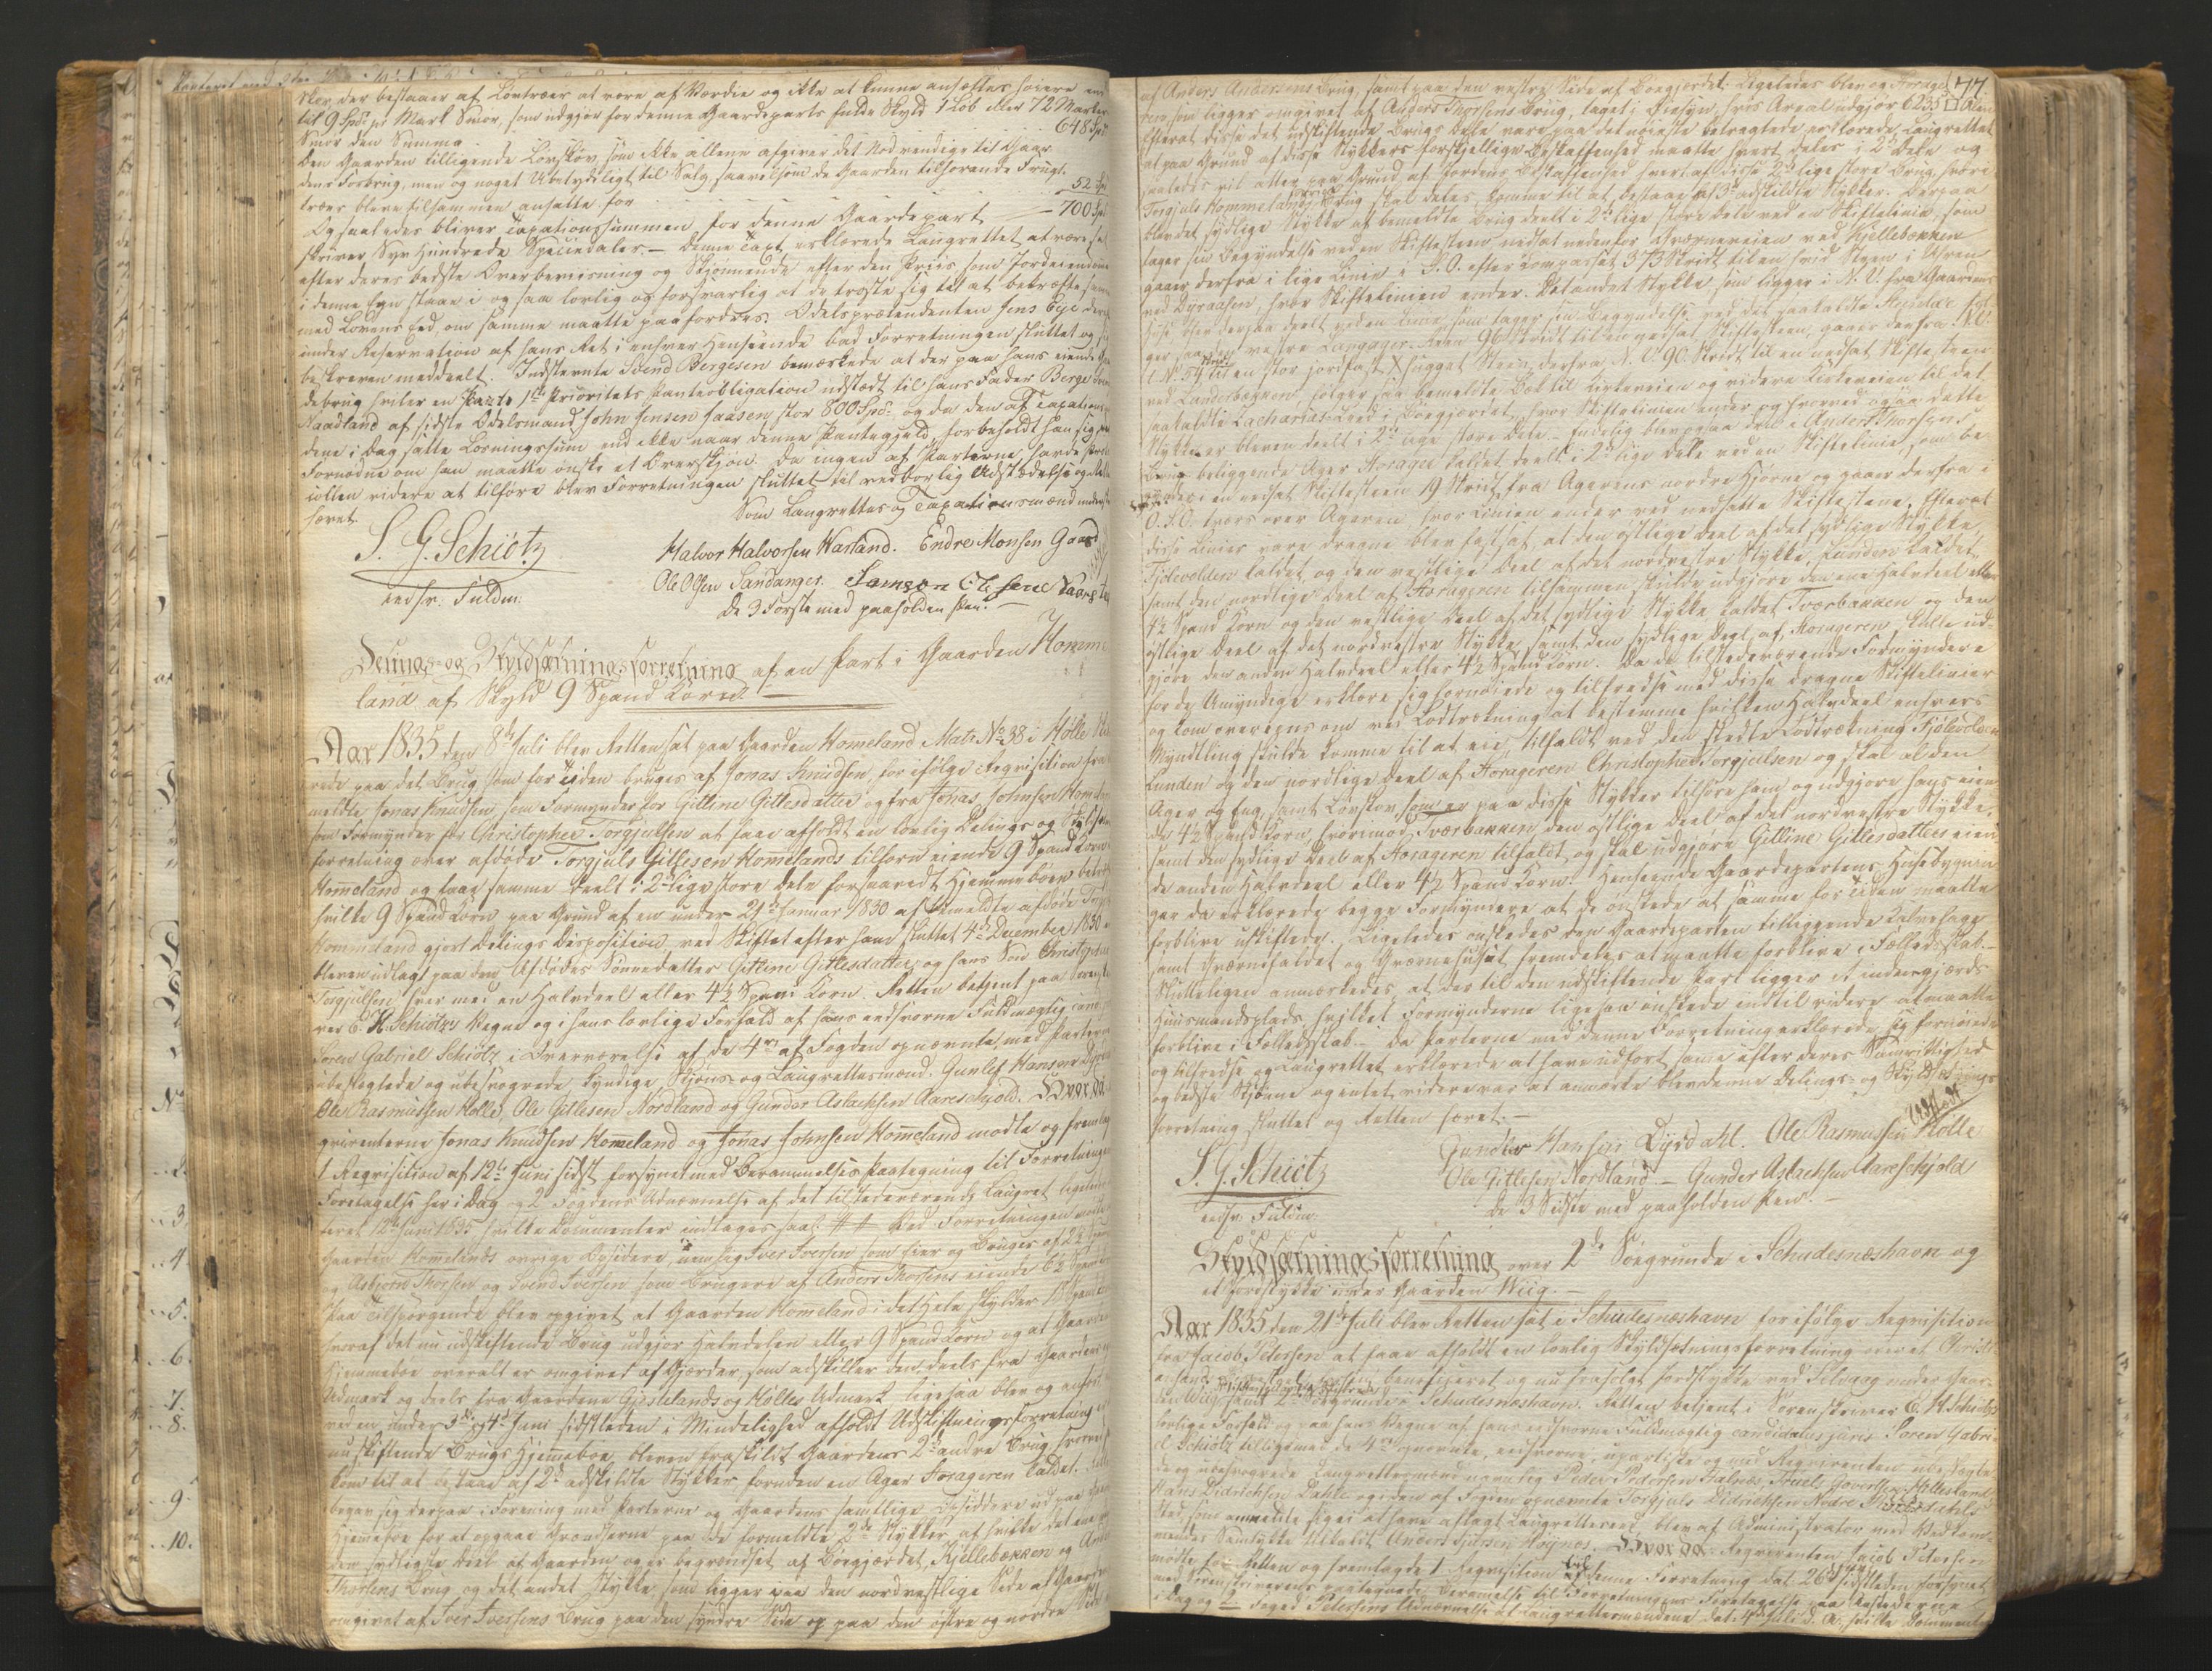 Skov, der bestaaer af Løvtræer at være af Værdie og ikke at kunne ansættes høiere end
til 9 Spd. pr Mark Smør, som udgjør for denne Gaardeparts fulde Skyld 1 Løb eller 72 Marker
Smør den Summa 648 Spd
Den Gaarden tilligende Løvskov, som ikke allene afgiver det Nødvendige til Gaar-
dens Forbrug, men og noget Ubetydeligt til Salg, saavelsom de Gaarden tilhørende Frugt-
træer bleve tilsammen ansatte for 52 Spd
Og saaledes bliver Taxationssummen for denne Gaardepart 700 Spd
skriver Syv Hundrede Speciedaler. — Denne Taxt erklærede Laugrettet at være sat
efter deres bedste Overbeviisning og Skjønnende efter den Priis som Jordeiendomme
i denne Egn staae i og saa lovlig og forsvarlig at de trøste sig til at bekræfte samme
med Lovens Eed, om samme maatte paafordres. Odelsprætendenten Jens Eye derefter
under Reservation af hans Ret i enhver Henseende bad Forretningen sluttet og sig
beskreven meddeelt. Indstevnte Svend Bergesen bemærkede at der paa hans eiende Gaar-
debrug hviler en 1ste Prioritets Panteobligation udstædt til hans Fader Berge
Naadland af sidste Odelsmand John Jensen Saasen, stor 800 Spd og da den af Taxations-
dene i Dag satte Løsningssum end ikke naar denne Pantegjeld, forbeholdt han sig,
Fornødne om han maatte ønske et Overskjøn. Da ingen af Parterne havde
ville videre at tilføre blev Forretningen sluttet til vedborlig Udstædelse og Retten
hævet.
Som Laugrettes og Taxationsmænd
S. G. Schiötz
edsv. Fuldm:
Halvor Halvorsen Warland. Endre Monsen Gaard
Ole Olsen Sandanger. Samson Olsen
de 3 Første med paaholden Pen. —
Delings- og Skyldsætningsforretning af en Part i Gaarden Homme-
land af Skyld 9 Spand Korn. —
Aar 1835 den 8de Juli blev Retten sat paa Gaarden Homeland Matr. No 38 i Holle
rede paa det Brug som for Tiden bruges af Jonas Knudsen, for ifølge Reqvisition fra
meldte Jonas Knudsen som Formynder for Gitline Gitlesdatter og fra Jonas Johnsen Homeland
som Formynder for Christopher Torgjulsen at faae afholdt en lovlig Delings og Skyldsætn
forretning over afdøde Torgjuls Gitlesen Homelands tilforn eiende 9 Spand Korn
Homeland og faae samme deelt i 2de lige store Dele forsaavidt Hjemmebøen
hvilke 9 Spand Korn paa Grund af en under 21de Januar 1830 af bemeldte afdøde
Hommeland gjort Delings Disposition, ved Skiftet efter ham sluttet 4de December 1830
bleven udlagt paa den Afdødes Sønnedatter Gitline Gitlesdatter og hans Søn Christopher
Torgjulsen hver med en Halvdeel eller 4½ Spand Korn. Retten betjent paa
ver C. H. Schiötz's Vegne og i hans lovlige Forfald af hans eedsvorne Fuldmægtig
Søren Gabriel Schiötz, i Overværelse af de 4re af Fogden opnævnte, med Parterne
ubeslegtede og ubesvogrede, kyndige Skjøns- og Laugrettesmænd. Gunlef Hansen
Ole Rasmussen Holle, Ole Gitlesen Nordland og Gunder Aslachsen Aareskjold. Hvorda
qvirenterne Jonas Knudsen Homeland og Jonas Johnsen Homeland mødte og fremlagde
1 Reqvisition af 12te Juni sidst forsynet med Berammelses Paategning til Forretningens
Foretagelse her i Dag og 2 Fogdens Udnævnelse af det tilstedeværende Laugret
teret 12te Juni 1835 hvilke Documenter indtages saal: ## Ved Forretningen mødte
Gaarden Homelands øvrige Opsidere, nemlig Iver Iversen som eier og bruger af
og Asbjørn Thorsen og Svend Iversen som brugere af Anders Thorsens eiende 6¾ Spand
Paa Tilspørgende blev opgivet at Gaarden Homeland i det Hele skylder 18 Spand
hvoraf det nu udskiftende Brug udgjør Halvdelen eller 9 Spand Korn og at Gaarden
Hjemmebøe overalt er omgivet af Gjærder, som adskiller den deels fra Gaardens
Udmark og deels fra Gaardene Gjeselands og Holles Udmark ligesaa blev og anført
ved en under 3de og 4de Juni sidstleden i Mindelighed afholdt Udskiftningsforretning
nu skiftende Brugs Hjemmebøe, bleven fraskildt Gaardens 2de andre Brug, hvorved
kom til at bestaae af 2de adskildte Stykker, foruden en Ager Horageren kaldet.
begav sig derpaa i Forening med Parterne og Gaardens samtlige Opsiddere ud paa
Hjemmebøe for at opgaae Grændserne paa de formeldte 2de Stykker af hvilke det ene
den sydligste Deel af Gaarden og er begrændset af Bøegjerdet, Kjellebækken og
Thorsens Brug og det andet Stykke, som ligger paa den nordvestlige Side af Gaarden
omgivet af Iver Iversens Brug paa den syndre Side og paa den østre og nordre Side
77
af Anders Andersens Brug, samt paa den vestre Side af Bøegjerdet. Ligeledes blev og Horage-
ren, som ligger omgivet af Anders Thorsens Brug, taget i Øiesyn, hvis Areal udgjør 6235 □ Alen
Efterat disse det udskiftende Brugs Dele vare paa det nøieste betragtede erklærede Laugrettet
at paa Grund af disse Stykkers forskjellige Beskaffenhed maatte hvert deles i 2de Dele og
saaledes vil atter paa Grund af Jordens Beskaffenhed hvert af disse 2de lige store Brug, hvori
Torgjuls Hommelands forrige Brug skal deles, komme til at bestaae af 3de adskildte Stykker. Derpaa
blev det sydlige Stykke af bemeldte Brug deelt i 2de lige store Dele ved en Skiftelinie, som
tager sin Begyndelse ved en Skiftesteen nedsat nedenfor Qværneveien ved Kjellebækken
gaaer derfra i lige Linie i S. O. efter Compasset 373 Skridt til en hvid Steen i Uren
ved Dyraasen, hvor Skiftelinien ender. Det andet Stykke som ligger i N. V. fra Gaardens
Huse blev derpaa deelt ved en Linie, som tager sin Begyndelse ved det saakaldte
ger saa vestre Langager-Reen 96 Skridt til en nedsat Skiftesteen, gaaer derfra N. V.
t. N. 54 Skridt til en stor jordfast X hugget Steen, derfra N. V. 90 Skridt til en nedsat Skiftesteen
ved Lundebækken, følger saa bemeldte Bæk til Kirkeveien og videre Kirkeveien til det
saakaldte Zacharias-Leed i Bøegjerdet, hvor Skiftelinien ender og hvorved ogsaa dette
Stykke er bleven deelt i 2de lige store Dele. — Endelig blev ogsaa den i Anders Thorsens
Brug beliggende Ager Horager kaldet, deelt i 2de lige Dele ved en Skiftelinie, som be-
gyndes i en nedsat Skiftesteen 19 Skridt fra Agerens nordre Hjørne og gaaer derfra i
O. S. O. tværs over Ageren, hvor Linien ender ved nedsatte Skiftestene. Efterat
disse Linier vare dragne blev fastsat, at den østlige Deel af det sydlige Stykke,
Fjølevolden kaldet, og den vestlige Deel af det nordvestre Stykke, Lunden kaldet,
samt den nordlige Deel af Horageren tilsammen skulde udgjøre den ene Halvdeel eller
4½ Spand Korn og den vestlige Deel af det sydlige Stykke kaldet Tværbakken og den
østlige Deel af det nordvestre Stykke, samt den sydlige Deel af Horageren, skulle ud-
gjøre den anden Halvdeel eller 4½ Spand Korn. Da de tilstedeværende Formyndere
for de Umyndige erklære sig fornøiede og tilfredse med disse dragne Skiftelinier
og kom overeens om ved Lodtrækning at bestemme hvilken Halvdeel enhvers
Myndtling skulde komme til at eie, tilfaldt ved den skeedte Lodtrækning Fjølevolden
Lunden og den nordlige Deel af Horageren Christopher Torgjulsen og skal al den
Ager og Eng, samt Løvskov, som er paa disse Stykker tilhøre ham og udgjøre hans eien-
de 4½ Spand Korn, hvorimod Tværbakken, den østlige Deel af det nordvestre Stykke,
samt den sydlige Deel af Horageren tilfaldt og skal udgjøre Gitline Gitlesdatters eien-
de anden Halvdeel eller 4½ Spand Korn. Henseende Gaardepartens Husebygnin-
ger da erklærede begge Formyndere at de ønskede at samme for Tiden maatte
forblive uskiftede. Ligeledes ønskedes den Gaardeparten tilliggende Kalvehage
samt Qværnefaldet og Qværnehuset fremdeles at maatte forblive i Fælledsskab. —
Skitteligen anmærkedes, at der til den udskiftende Part ligger et indengjærds
Huusmandsplads, hvilket Formynderne ligesaa ønskede indtil videre at maatte
forblive i Fælledsskab. — Da Parterne med denne Forretning erklærede sig fornøiede
og tilfredse og Laugrettet erklærede at have udført samme efter deres Samvittighed
og bedste Skjønne og intet videre var at anmærke blev denne Delings- og Skyldsætnings-
forretning sluttet og Retten hævet. —
Udstædt
S. G. Schiötz
edsv. Fuldm.
Gunder Hansen Dysdahl. Ole Rasmussen Holle
Ole Gitlesen Nordland — Gunder Aslachsen Aareskjold
de 3 Sidste med paaholden Pen. —
Skyldsætningsforretning over 2de Søegrunde i Schudesnæshavn og
et Jordstykke under Gaarden Wiig. —
Aar 1835 den 21de Juli blev Retten sat i Schudesnæshavn for ifølge Reqvisition
fra Jacob Petersen at faae afholdt en lovlig Skyldsætningsforretning over et
beneficeret og nu frasolgt Jordstykke ved Silvaag under Gaar-
den Wiig, samt 2de Søegrunde i Schudesnæshavn. Retten betjent i Sorenskriver C. H. Schiötz's
lovlige Forfald og paa hans Vegne af hans eedsvorne Fuldmægtig candidatus juris Søren Gabri-
el Schiötz tilligemed de 4re opnævnte, eedsvorne, upartiske og med Reqvirenten ubeslegte-
de og ubesvogrede Laugrettesmænd navnlig Peder Pedersen Falnæs, Govertsen Hillesland,
Hans Didrichsen Dahle og i den af Fogden opnævnte Torgjuls Didrichsen Nedre Dahles
Sted, som anmeldte sig ei at have aflagt Laugrettesed, blev af Administrator med Vedkom-
mendes Samtykke tilkaldt Anders Sjursen Høynæs. Hvorda Reqvirenten Jacob Petersen
mødte for Retten og fremlagde 1 Reqvisition til denne Forretning dat. 26de Juni sidstleden forsynet
med Sorenskriverens paategnede Berammelse til Forretningens Foretagelse paa Aastederne
i Dag og 2 Foged Petersens Udnævnelse af Laugrettesmændene dat: 4de Juli d. A., hvilke Documenter